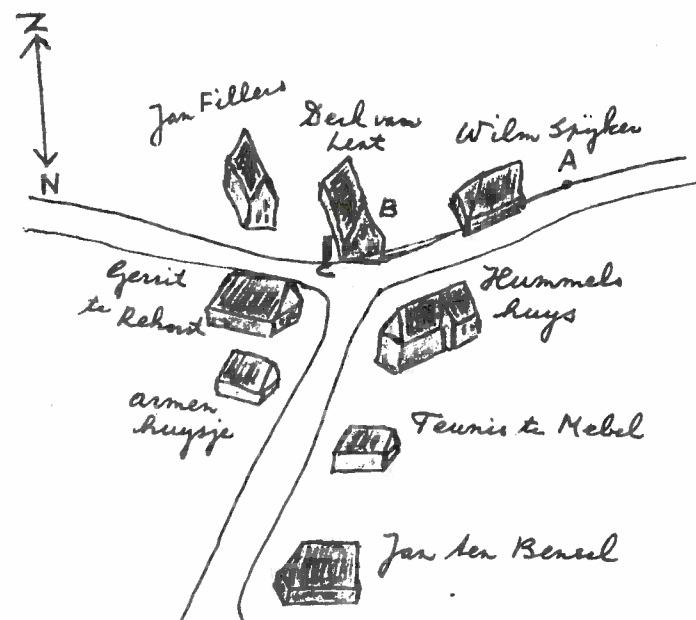 Z
Jan Fillers
Derk van
Lent
Wilm Spijker
A
N
B
C
Gerrit
te Rehorst
Hummels
huys
armen
huysje
Teunis te Mebel
Jan ten Bensel